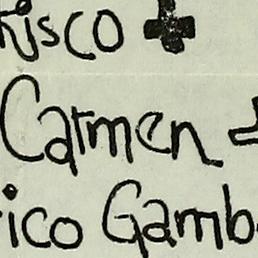 risco ✚
Carmen
ico Gamb